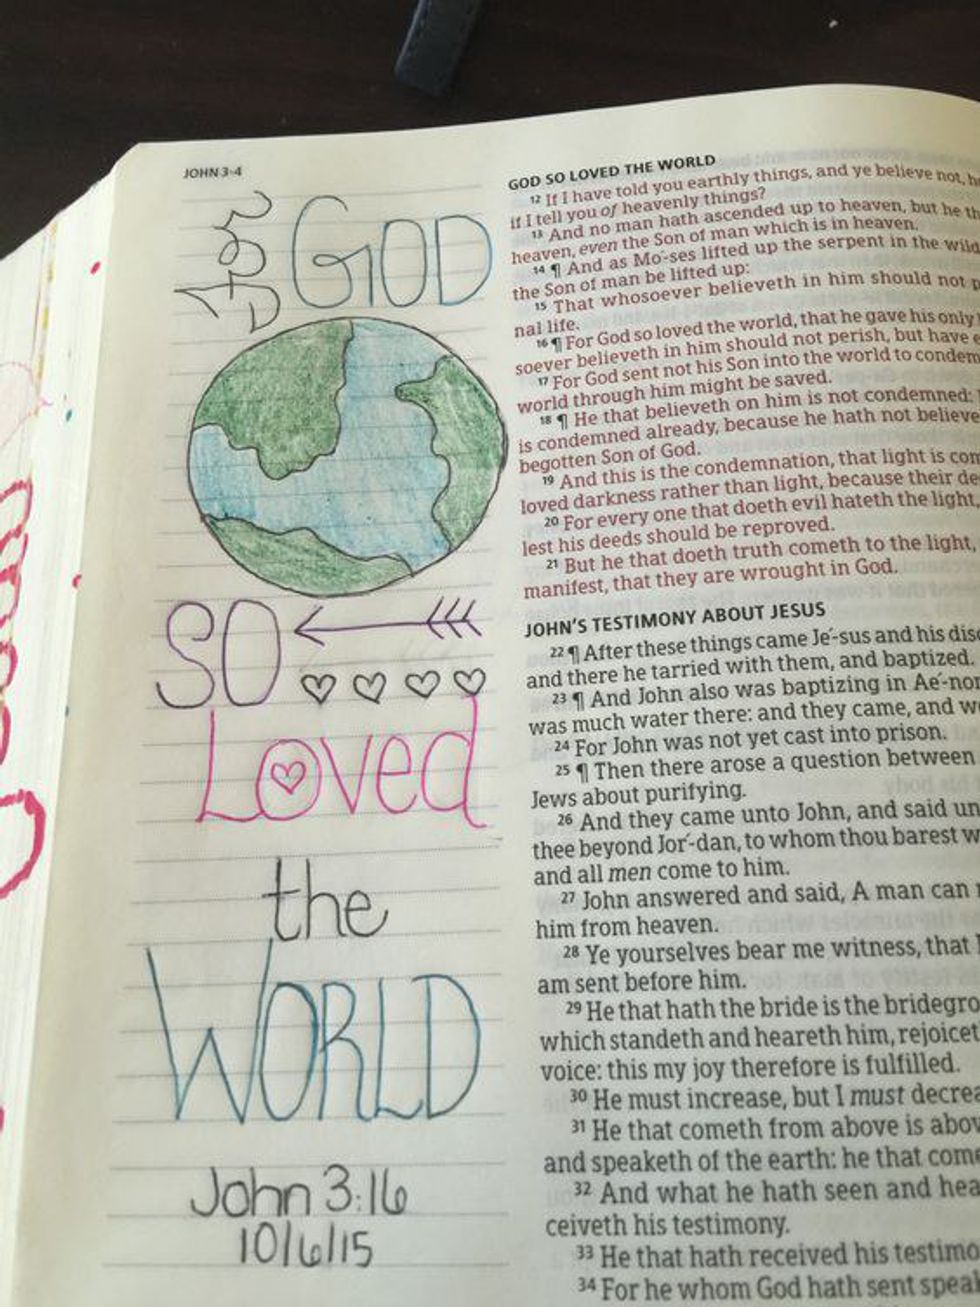 JOHN 3-4
For GOD
SO
Loved
the
WORLD
John 3:16
10/6/15
GOD SO LOVED THE WORLD
12 If I have told you earthly things, and ye believe not,
if I tell you of heavenly things?
13 And no man hath ascended up to heaven, but he
heaven, even the Son of man which is in heaven.
14 ¶ And as Mo´-ses lifted up the serpent in the
the Son of man be lifted up:
15 That whosoever believeth in him should not
nal life.
16 ¶ For God so loved the world, that he gave his only
soever believeth in him should not perish, but have
17 For God sent not his Son into the world to
world through him might be saved.
18 ¶ He that believeth on him is not condemned:
is condemned already, because he hath not
begotten Son of God.
19 And this is the condemnation, that light is
loved darkness rather than light, because their
20 For every one that doeth evil hateth the light,
lest his deeds should be reproved.
21 But he that doeth truth cometh to the light,
manifest, that they are wrought in God.
JOHN'S TESTIMONY ABOUT JESUS
22 ¶ After these things came Je´-sus and his
and there he tarried with them, and baptized.
23 ¶ And John also was baptizing in
was much water there: and they came, and
24 For John was not yet cast into prison.
25 ¶ Then there arose a question between
Jews about purifying.
26 And they came unto John, and said
thee beyond Jor´-dan, to whom thou barest
and all men come to him.
27 John answered and said, A man can
him from heaven.
28 Ye yourselves bear me witness, that
am sent before him.
29 He that hath the bride is the
which standeth and heareth him,
voice: this my joy therefore is fulfilled.
30 He must increase, but I must
31 He that cometh from above is
and speaketh of the earth: he that
32 And what he hath seen and
ceiveth his testimony.
33 He that hath received his
34 For he whom God hath sent